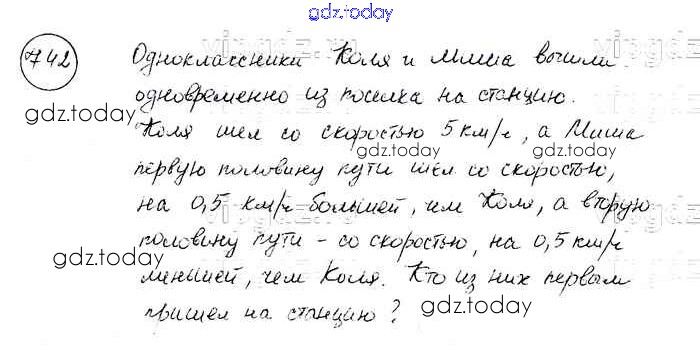 gdz.today
742 Одноклассники Коля и Миша вышли
одновременно из поселка на станцию.
gdz.today
Коля шел со скоростью 5 км/ч, а Миша
gdz.today
первую половину пути шел со скоростью,
на 0,5 км/ч большей, чем Коля, а вторую
половину пути - со скоростью, на 0,5 км/ч
gdz.today
меньшей, чем Коля. Кто из них первым
gdz.today
пришел на станцию?